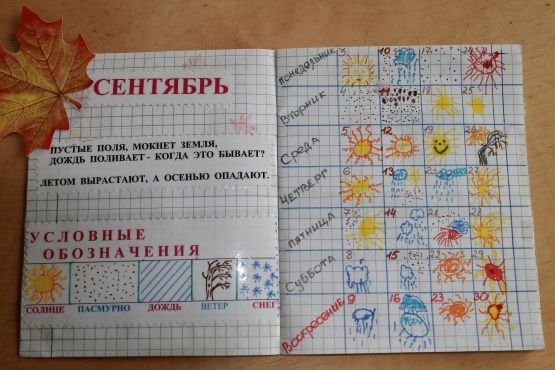 СЕНТЯБРЬ
ПУСТЫЕ ПОЛЯ, МОКНЕТ ЗЕМЛЯ,
ДОЖДЬ ПОЛИВАЕТ - КОГДА ЭТО БЫВАЕТ?
ЛЕТОМ ВЫРАСТАЮТ, А ОСЕНЬЮ ОПАДАЮТ.
УСЛОВНЫЕ
ОБОЗНАЧЕНИЯ
СОЛНЦЕ ПАСМУРНО ДОЖДЬ ВЕТЕР СНЕГ
ПОНЕДЕЛЬНИК 3 10 17 24
ВТОРНИК 4 11 18 25
Среда 5 12 19 26
ЧЕТВЕРГ 6 13 20 27
ПЯТНИЦА 7 14 21 28
Суббота 8 15 22 29
Воскресение 9 16 23 30